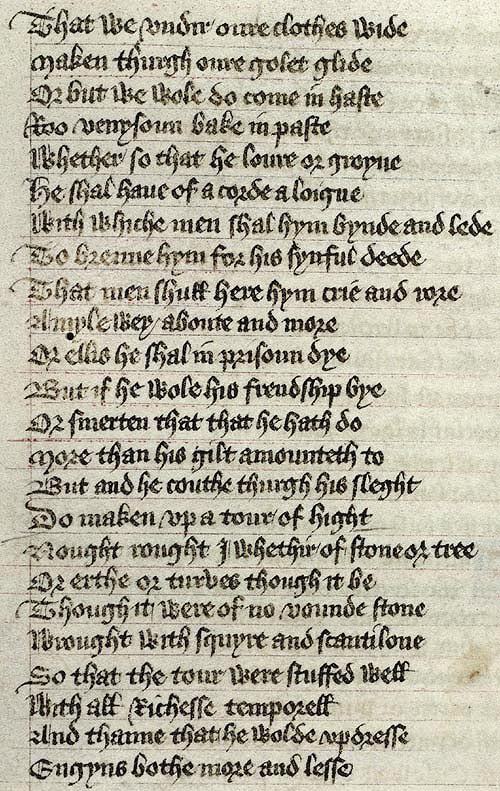 That we vndir oure clothes wide
Maken thurgh oure golet glide
Or but we wole do come in haste
Roo venysoun bake in paste
Whether so that he loure or groyne
He shal haue of a corde a loigne
With whiche men shal hym bynde and lede
To brenne hym for his synful deede
That men shull here hym crie and rore
A myle wey aboute and more
Or ellis he shal in prisoun dye
But if he wole his frendship bye
Or smerten that that he hath do
More than his gilt amounteth to
But and he couthe thurgh his sleght
Do maken vp a tour of hight
Nought rought I whethir of stone or tree
Or erthe or turves though it be
Though it were of no vounde stone
Wrought with squyre and scantilone
So that the tour were stuffed well
With all Richesse temporell
And thanne that he wolde vpdresse
Engyns bothe more and lesse